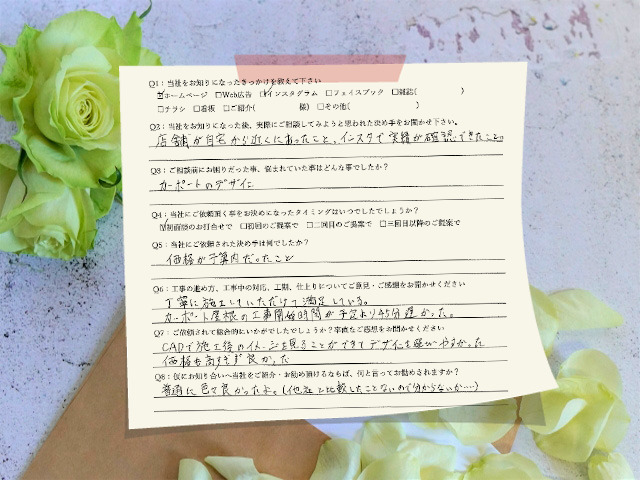 Q1：当社をお知りになったきっかけを教えて下さい
☑ホームページ □Web広告 ☑インスタグラム □フェイスブック □雑誌( )
□チラシ □看板 □ご紹介( 様) □その他( )
Q2：当社をお知りになった後、実際にご相談してみようと思われた決め手をお聞かせ下さい。
店舗が自宅から近くにあったこと、インスタで実績が確認できたこと。
Q3：ご相談前にお困りだった事、悩まれていた事はどんな事でしたか？
カーポートのデザイン
Q4：当社にご依頼頂く事をお決めになったタイミングはいつでしたでしょうか？
☑初面談のお打合せで □初回のご提案で □二回目のご提案で □三回目以降のご提案で
Q5：当社にご依頼された決め手は何でしたか？
価格が予算内だったこと
Q6：工事の進め方、工事中の対応、工期、仕上りについてご意見・ご感想をお聞かせください
丁寧に施工していただけて満足している。
カーポート屋根の工事開始時間が予定より45分遅かった。
Q7：ご依頼されて総合的にいかがでしたでしょうか？率直なご感想をお聞かせください
CADで施工後のイメージを見ることができてデザインを選びやすかった
価格も高すぎず良かった
Q8：仮にお知り合いへ当社をご紹介・お勧め頂けるならば、何と言ってお勧めされますか？
普通に色々良かったよ。(他社と比較したことないので分からないが……)